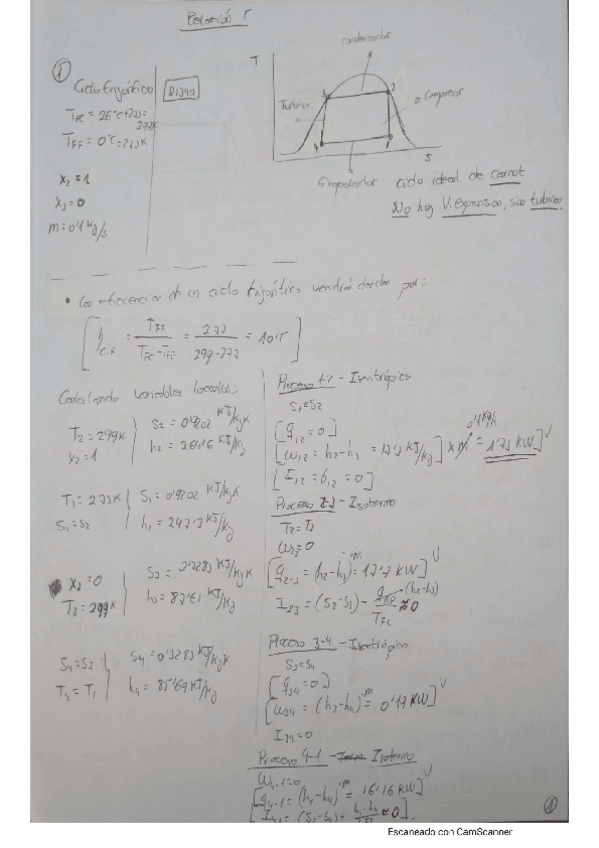 Relación 5
①
Ciclo Frigorífico
R134a
T_FC = 26°C+273=
299K
T_FF = 0°C=273K
x₂ = 1
x₃ = 0
ṁ = 0'1 kg/s
T
condensador
3
2
Turbina
Compresor
4
1
S
Evaporador
ciclo ideal de Carnot
No hay V. expansion, sino turbina.
• La eficiencia de un ciclo frigorífico vendrá dada por:
[ η_C.F = T_FF / (T_FC - T_FF) = 273 / (299-273) = 10'5 ]
Calculando variables locales:
T₂ = 299K
x₂ = 1
S₂ = 0'9202 KJ/kgK
h₂ =
T₁ = 273K
S₁ = S₂
S₁ = 0'9202 KJ/kgK
h₁ =
x₃ = 0
T₃ = 299K
S₃ =
h₃ =
S₄ = S₃
T₄ = T₁
S₄ =
h₄ = 85'69 KJ/kg
Proceso 1-2 - Isentrópico
S₁=S₂
[ q₁₂ = 0 ]
[ w₁₂ = h₂ - h₁ = 17'3 KJ/kg ] × ṁ = 1'73 KW ]
0'1 kg/s
[ I₁₂ = σ₁₂ = 0 ]
Proceso 2-3 - Isotermo
T₂ = T₃
w₂₃ = 0
[ q₂₋₃ = (h₂-h₃)·ṁ = 17'7 KW ]
I₂₃ = (S₂-S₃) - q₂₃ / T_FC ≈ 0
(h₂-h₃)
Proceso 3-4 - Isentrópico
S₃=S₄
[ q₃₄ = 0 ]
[ w₃₄ = (h₃-h₄)·ṁ = 0'17 KW ]
I₃₄ = 0
Proceso 4-1 - Isotermo
w₄₋₁ = 0
[ q₄₋₁ = (h₁-h₄)·ṁ = 16'16 KW ]
[ I₄₁ = (S₁-S₄) - (h₁-h₄) / T_FF ≈ 0 ]
①
Escaneado con CamScanner